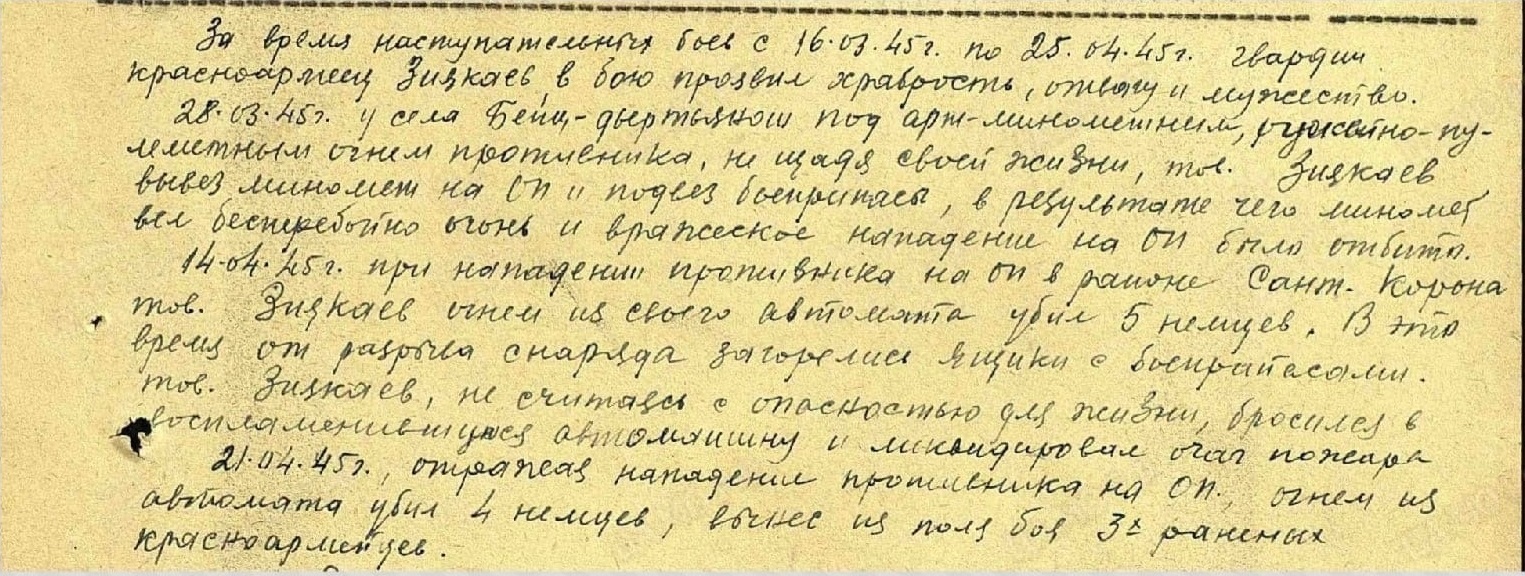 За время наступательных боев с 16.03.45г. по 25.04.45г. гвардии
красноармеец Зицкаев в бою проявил храбрость, отвагу и мужество.
28.03.45г. у села Бейц-дьертьянош под арт-минометным, ружейно-пу-
леметным огнем противника, не щадя своей жизни, тов. Зицкаев
вывез миномет на ОП и подвез боеприпасы, в результате чего миномет
вел бесперебойно огонь и вражеское нападение на ОП было отбито.
14.04.45г. при нападении противника на ОП в районе Сант. Корона
тов. Зицкаев огнем из своего автомата убил 5 немцев. В это
время от разрыва снаряда загорелись ящики с боеприпасами.
тов. Зицкаев, не считаясь с опасностью для жизни, бросился в
воспламенившуюся автомашину и ликвидировал очаг пожара
21.04.45г., отражая нападение противника на ОП, огнем из
автомата убил 4 немцев, вынес из поля боя 3х раненых
красноармейцев.